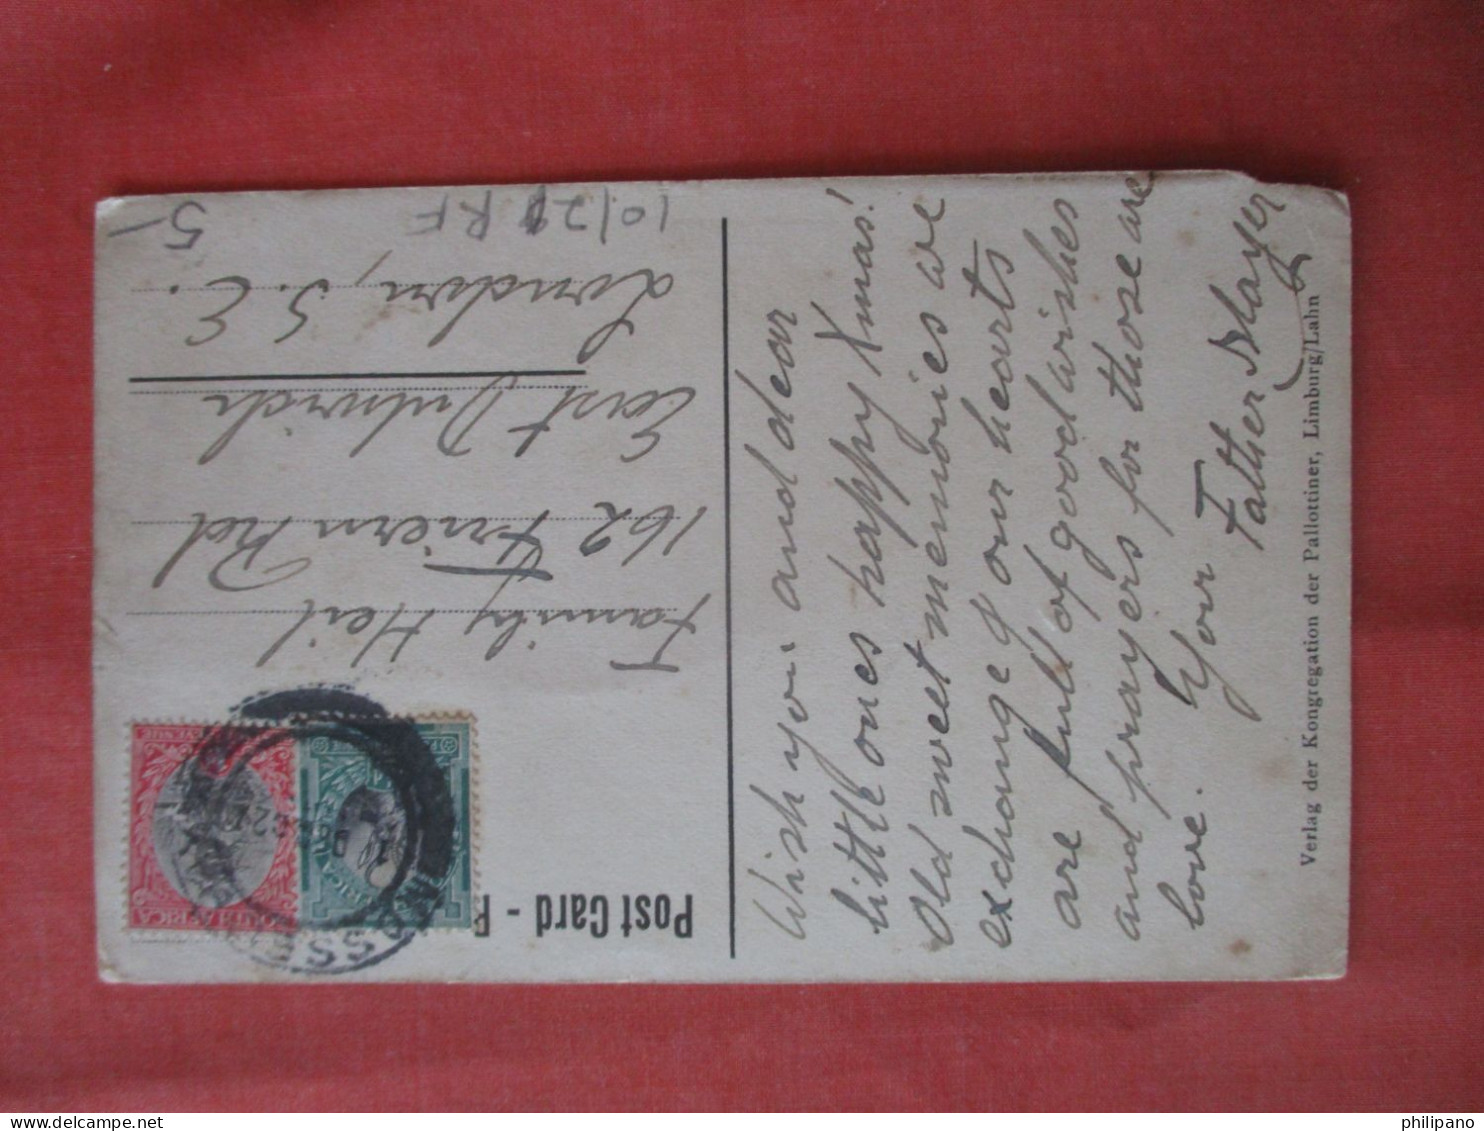 Wish you and dear
little ones happy Xmas!
Old sweet memories are
exchange & our hearts
are full of good wishes
and prayers for those are
love. Your
Father Mayer
Verlag der Kongregation der Pallottiner, Limburg/Lahn
Post Card -
Family Heil
162 Friern Rd
East Dulwich
London, S. E.
10/21 RF
5-
SOUTH AFRICA
philipano